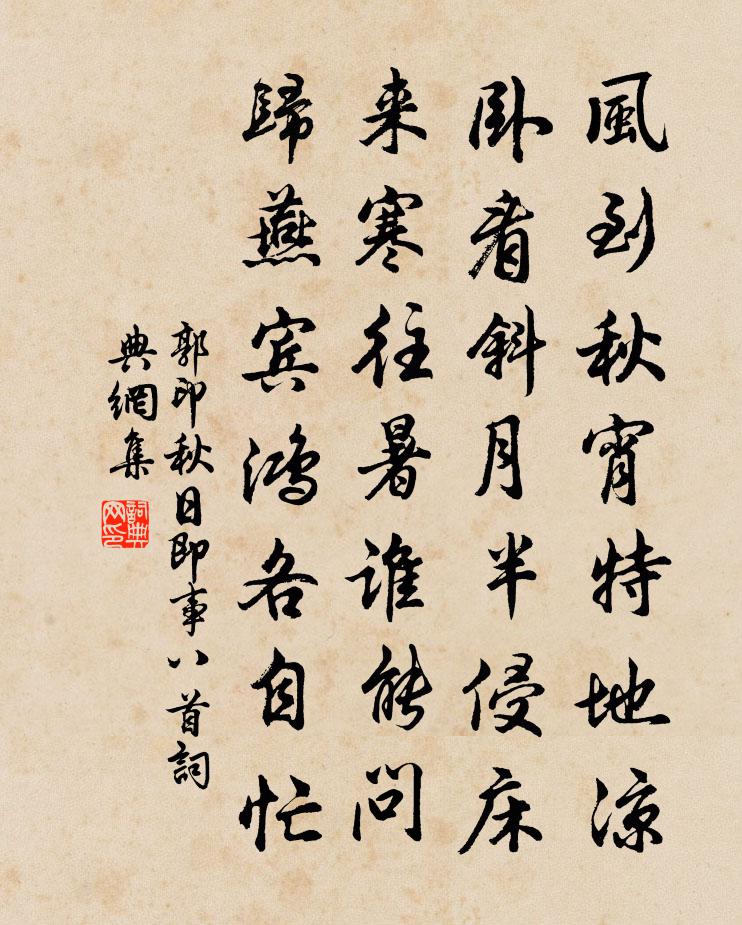 風到秋宵特地涼
卧看斜月半侵床
来寒往暑誰能問
歸燕賓鴻各自忙
郭印秋日即事八首詞
典網集
詞典
网印